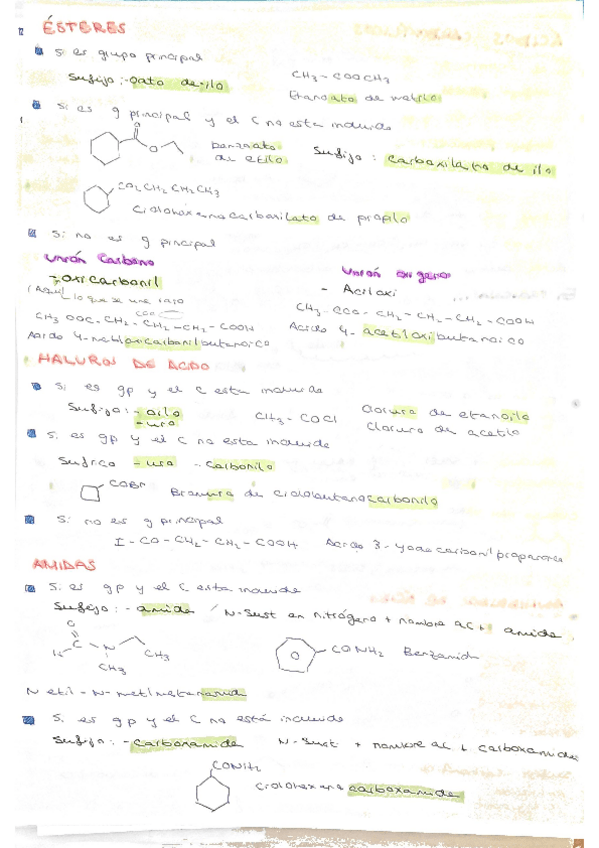 ÉSTERES
Si es grupo principal
Sufijo: -oato de -ilo
CH3 - COOCH3
Etanoato de metilo
Si es g principal y el C no esta incluido
O
O
benzoato
de etilo
Sufijo: carboxilato de ilo
CO2 CH2 CH2 CH3
Ciclohexanocarboxilato de propilo
Si no es g principal
Unión Carbono
Unión oxigeno
- oxicarbonil
- Aciloxi
lo que se une
CH3 OOC-CH2-CH2-CH2-COOH
CH3-COO-CH2-CH2-CH2-COOH
Acido 4-metiloxicarbonilbutanoico
Acido 4-acetiloxibutanoico
HALUROS DE ACIDO
Si es gp y el C esta incluido
Sufijo: - oilo
- uro
CH3 - COCl
Cloruro de etanoilo
Cloruro de acetilo
Si es gp y el C no esta incluido
Sufijo - uro - carbonilo
COBr
Bromuro de ciclobutanocarbonilo
Si no es g principal
I - CO - CH2 - CH2 - COOH
Acido 3-yodocarbonilpropanoico
AMIDAS
Si es gp y el C esta incluido
Sufijo: - amida / N-Sust en nitrógeno + nombre ac + amida
O
H C N CH3
CH3
CONH2
Benzamida
N etil - N-metilmetanamida
Si es gp y el C no está incluido
Sufijo: - carboxamida
N-Sust + nombre ac + carboxamida
CONH2
ciclohexanocarboxamida